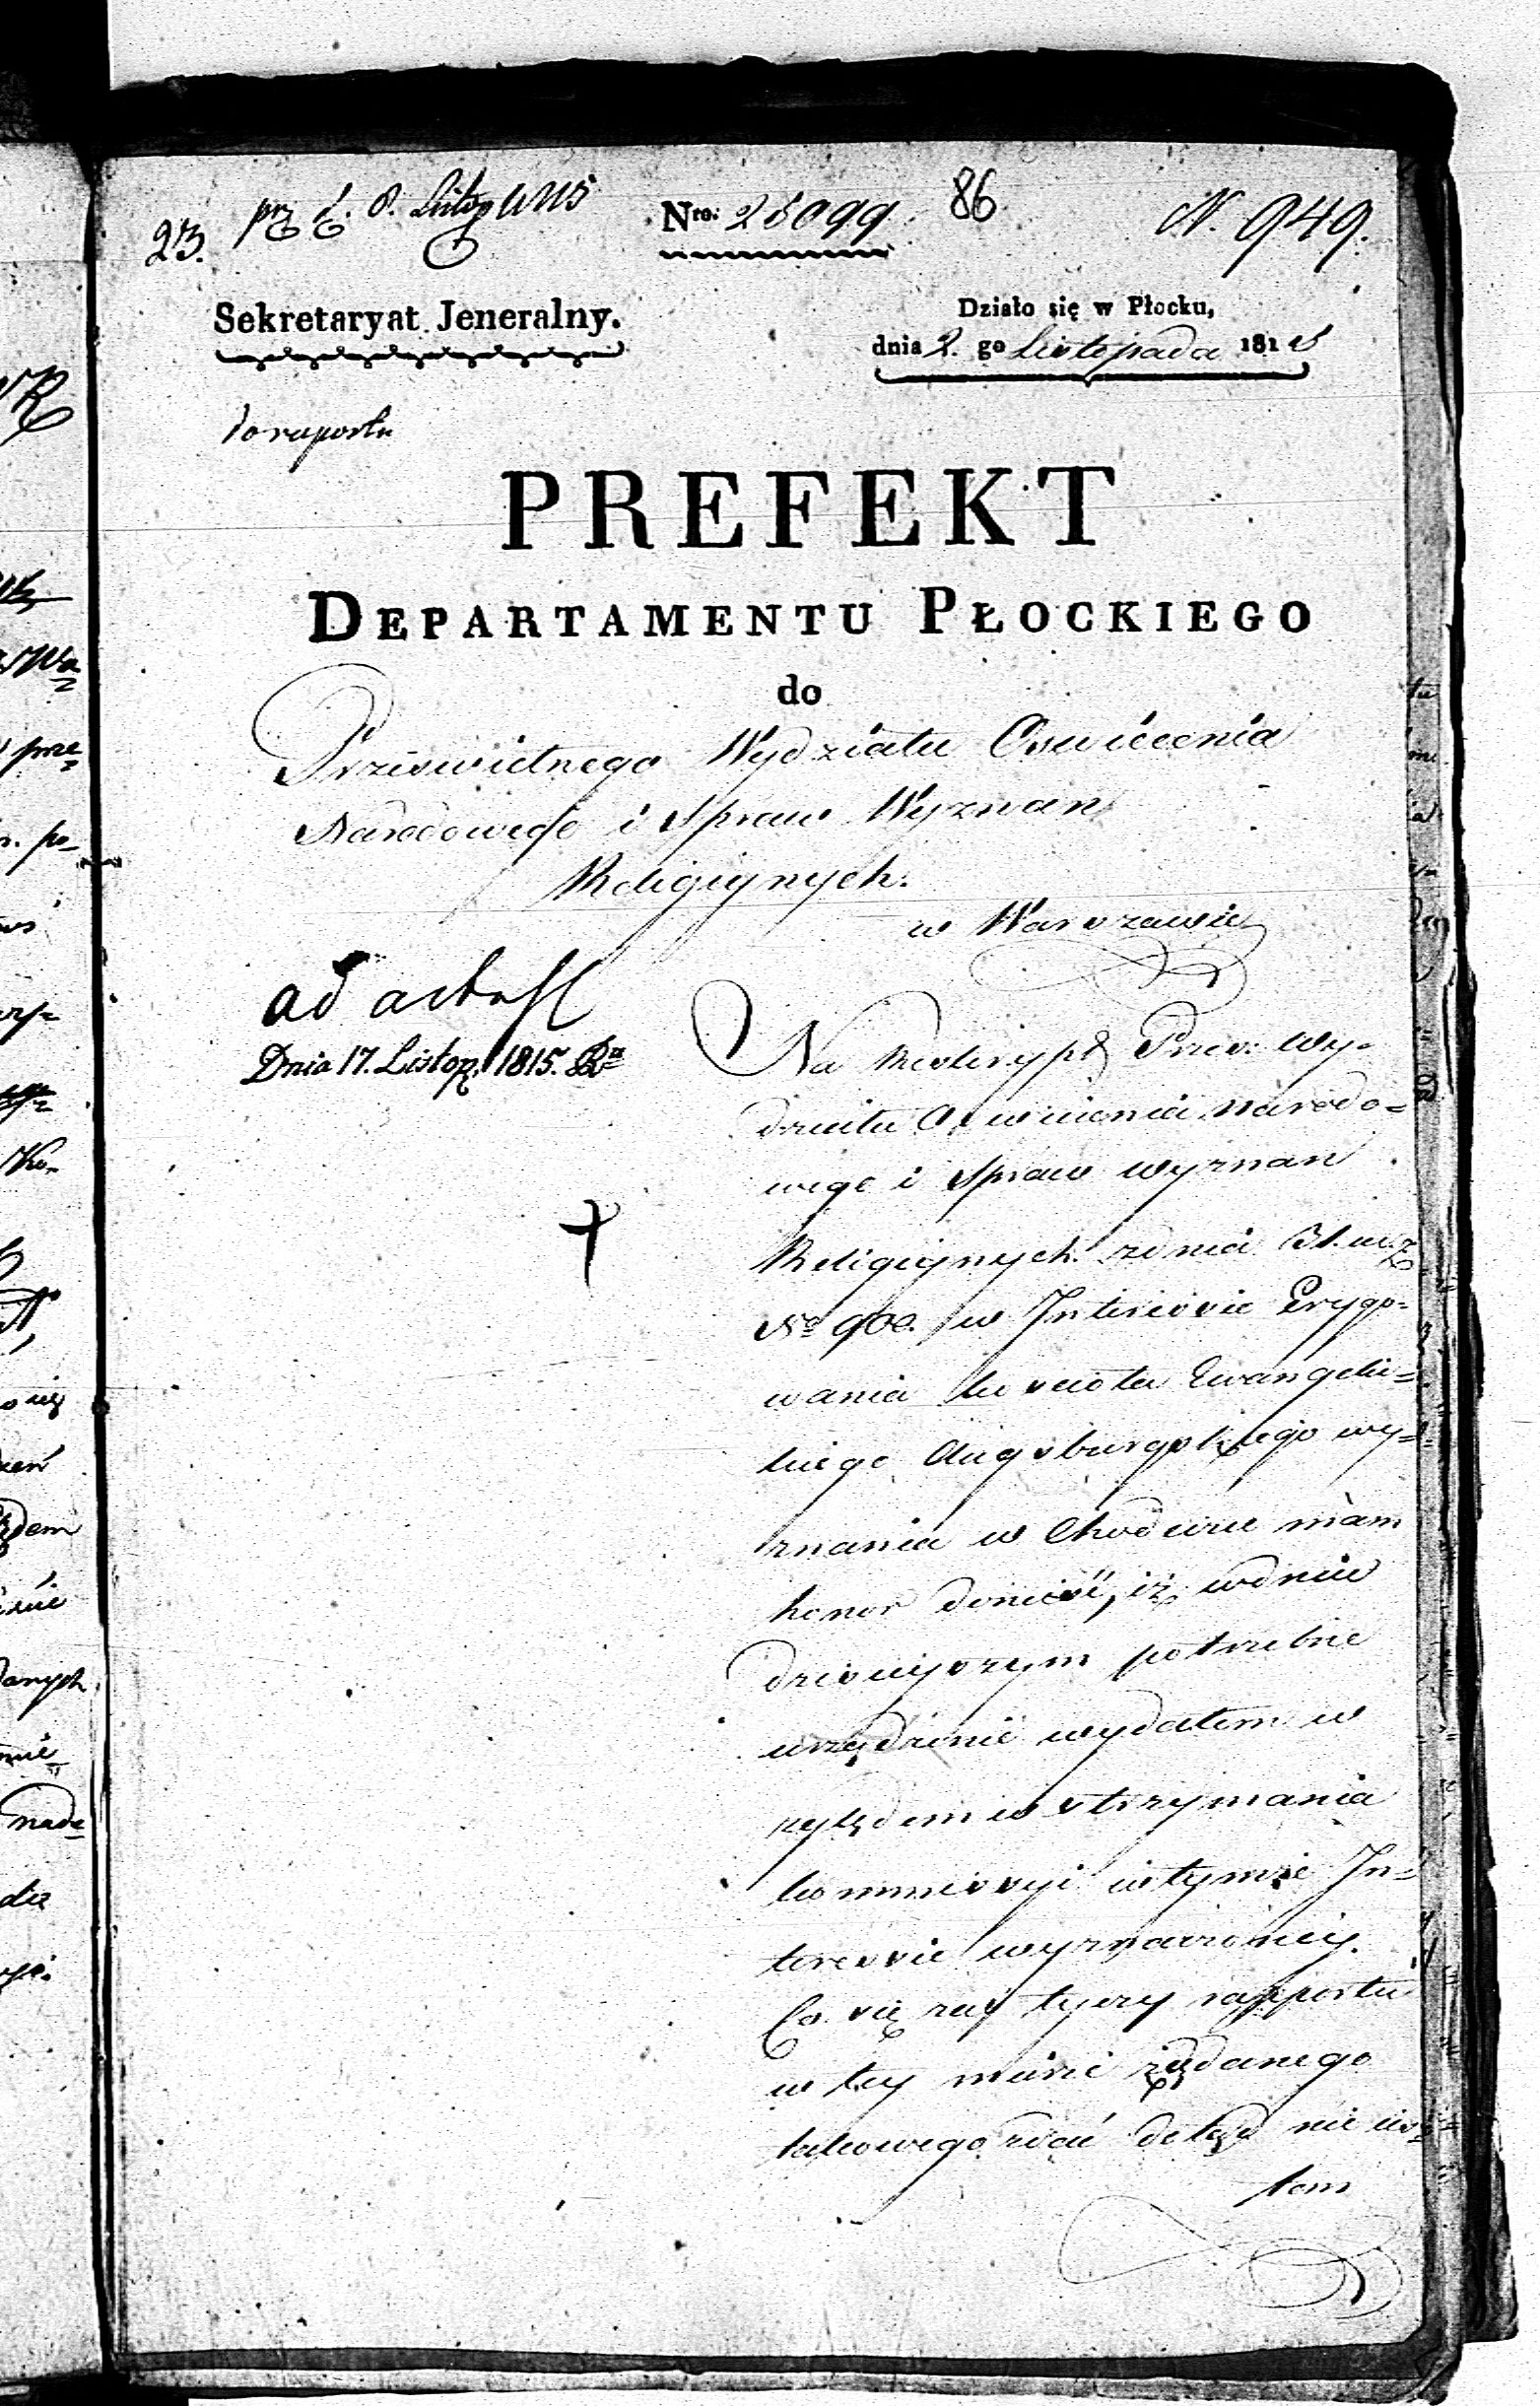 23. prz d. 8. Listop 1815
Nro: 28099.
86
N. 949.
Sekretaryat Jeneralny.
Działo się w Płocku,
dnia 2. go Listopada 1815
do raportu
PREFEKT
DEPARTAMENTU PŁOCKIEGO
do
Prześwietnego Wydziału Oswiecenia
Narodowego i Spraw Wyznan
Religiynych.
w Warszawie
ad acta
Dnia 17. Listop. 1815.
Na Reskrypt Prześ: Wy-
działu Oswiecenia narodo=
wego i Spraw wyznan
Religiynych z dnia 31. u. z
No 900. w Interessie Erygo=
wania kościoła Ewangelic=
kiego Augsburgskiego wy=
znania w Chodczu mam
honor donieść, iż w dniu
dzisieyszym potrzebne
urządzenie wydałem w
względem wstrzymania
kommissyi w tymże In=
teressie wyznaczoney.
Co się zaś tyczy rapportu
w tey mierze żądanego
takowego zdać dotąd nie
łem